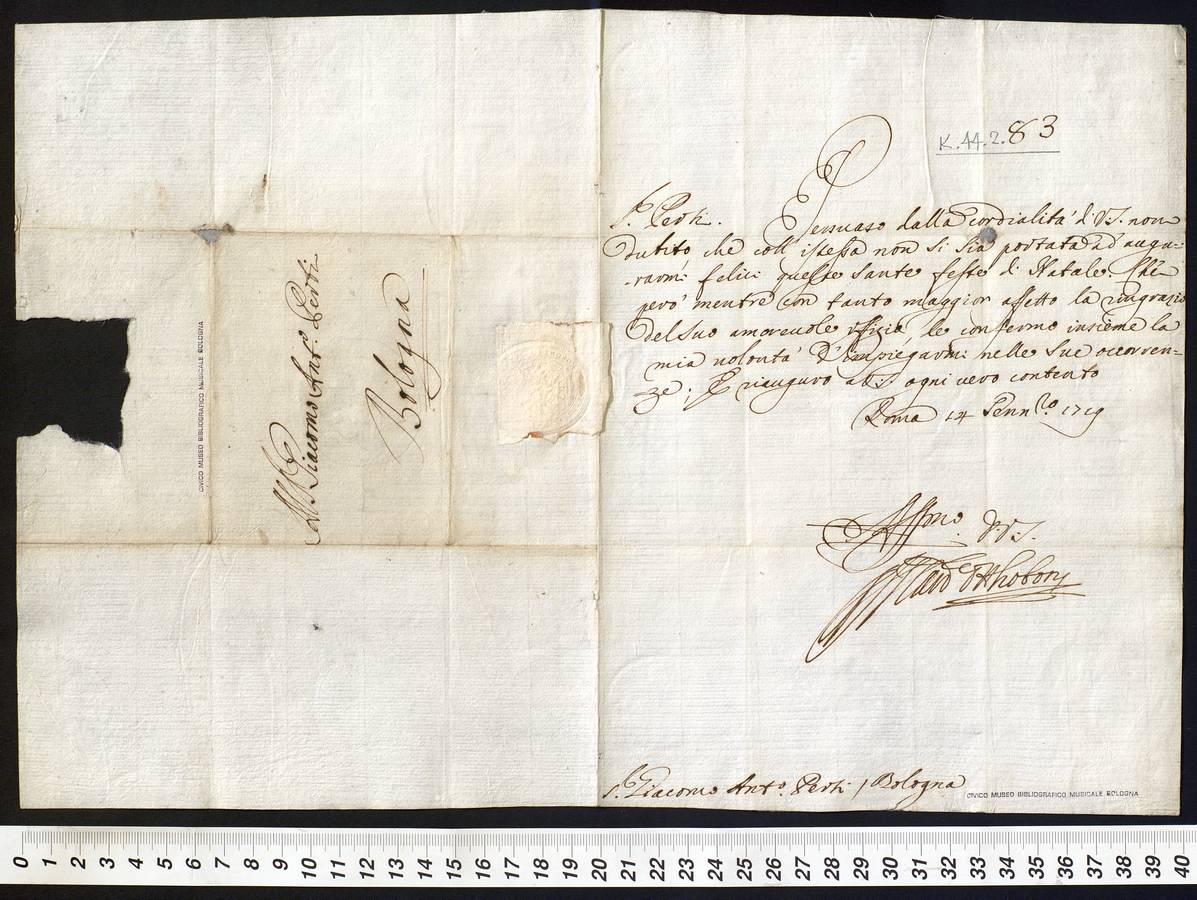 Al Sr. Giacomo Ant.o Perti
Bologna
CIVICO MUSEO BIBLIOGRAFICO MUSICALE BOLOGNA
K.44.2.83
Sr. Perti. Persuaso dalla cordialità di V.S. non
dubito, che coll' istessa non si sia portata ad augu-
rarmi felici queste sante feste di Natale. Che
però mentre con tanto maggior affetto la ringrazio
del suo amorevole ufficio, le confermo insieme la
mia volontà d'impiegarmi nelle sue occorren-
ze; E riauguro a V.S. ogni vero contento
Roma 14 Genn.ro 1719
Aff.mo di V.S.
Card. Otthoboni
Sr. Giacomo Ant.o Perti / Bologna
CIVICO MUSEO BIBLIOGRAFICO MUSICALE BOLOGNA
0 1 2 3 4 5 6 7 8 9 10 11 12 13 14 15 16 17 18 19 20 21 22 23 24 25 26 27 28 29 30 31 32 33 34 35 36 37 38 39 40